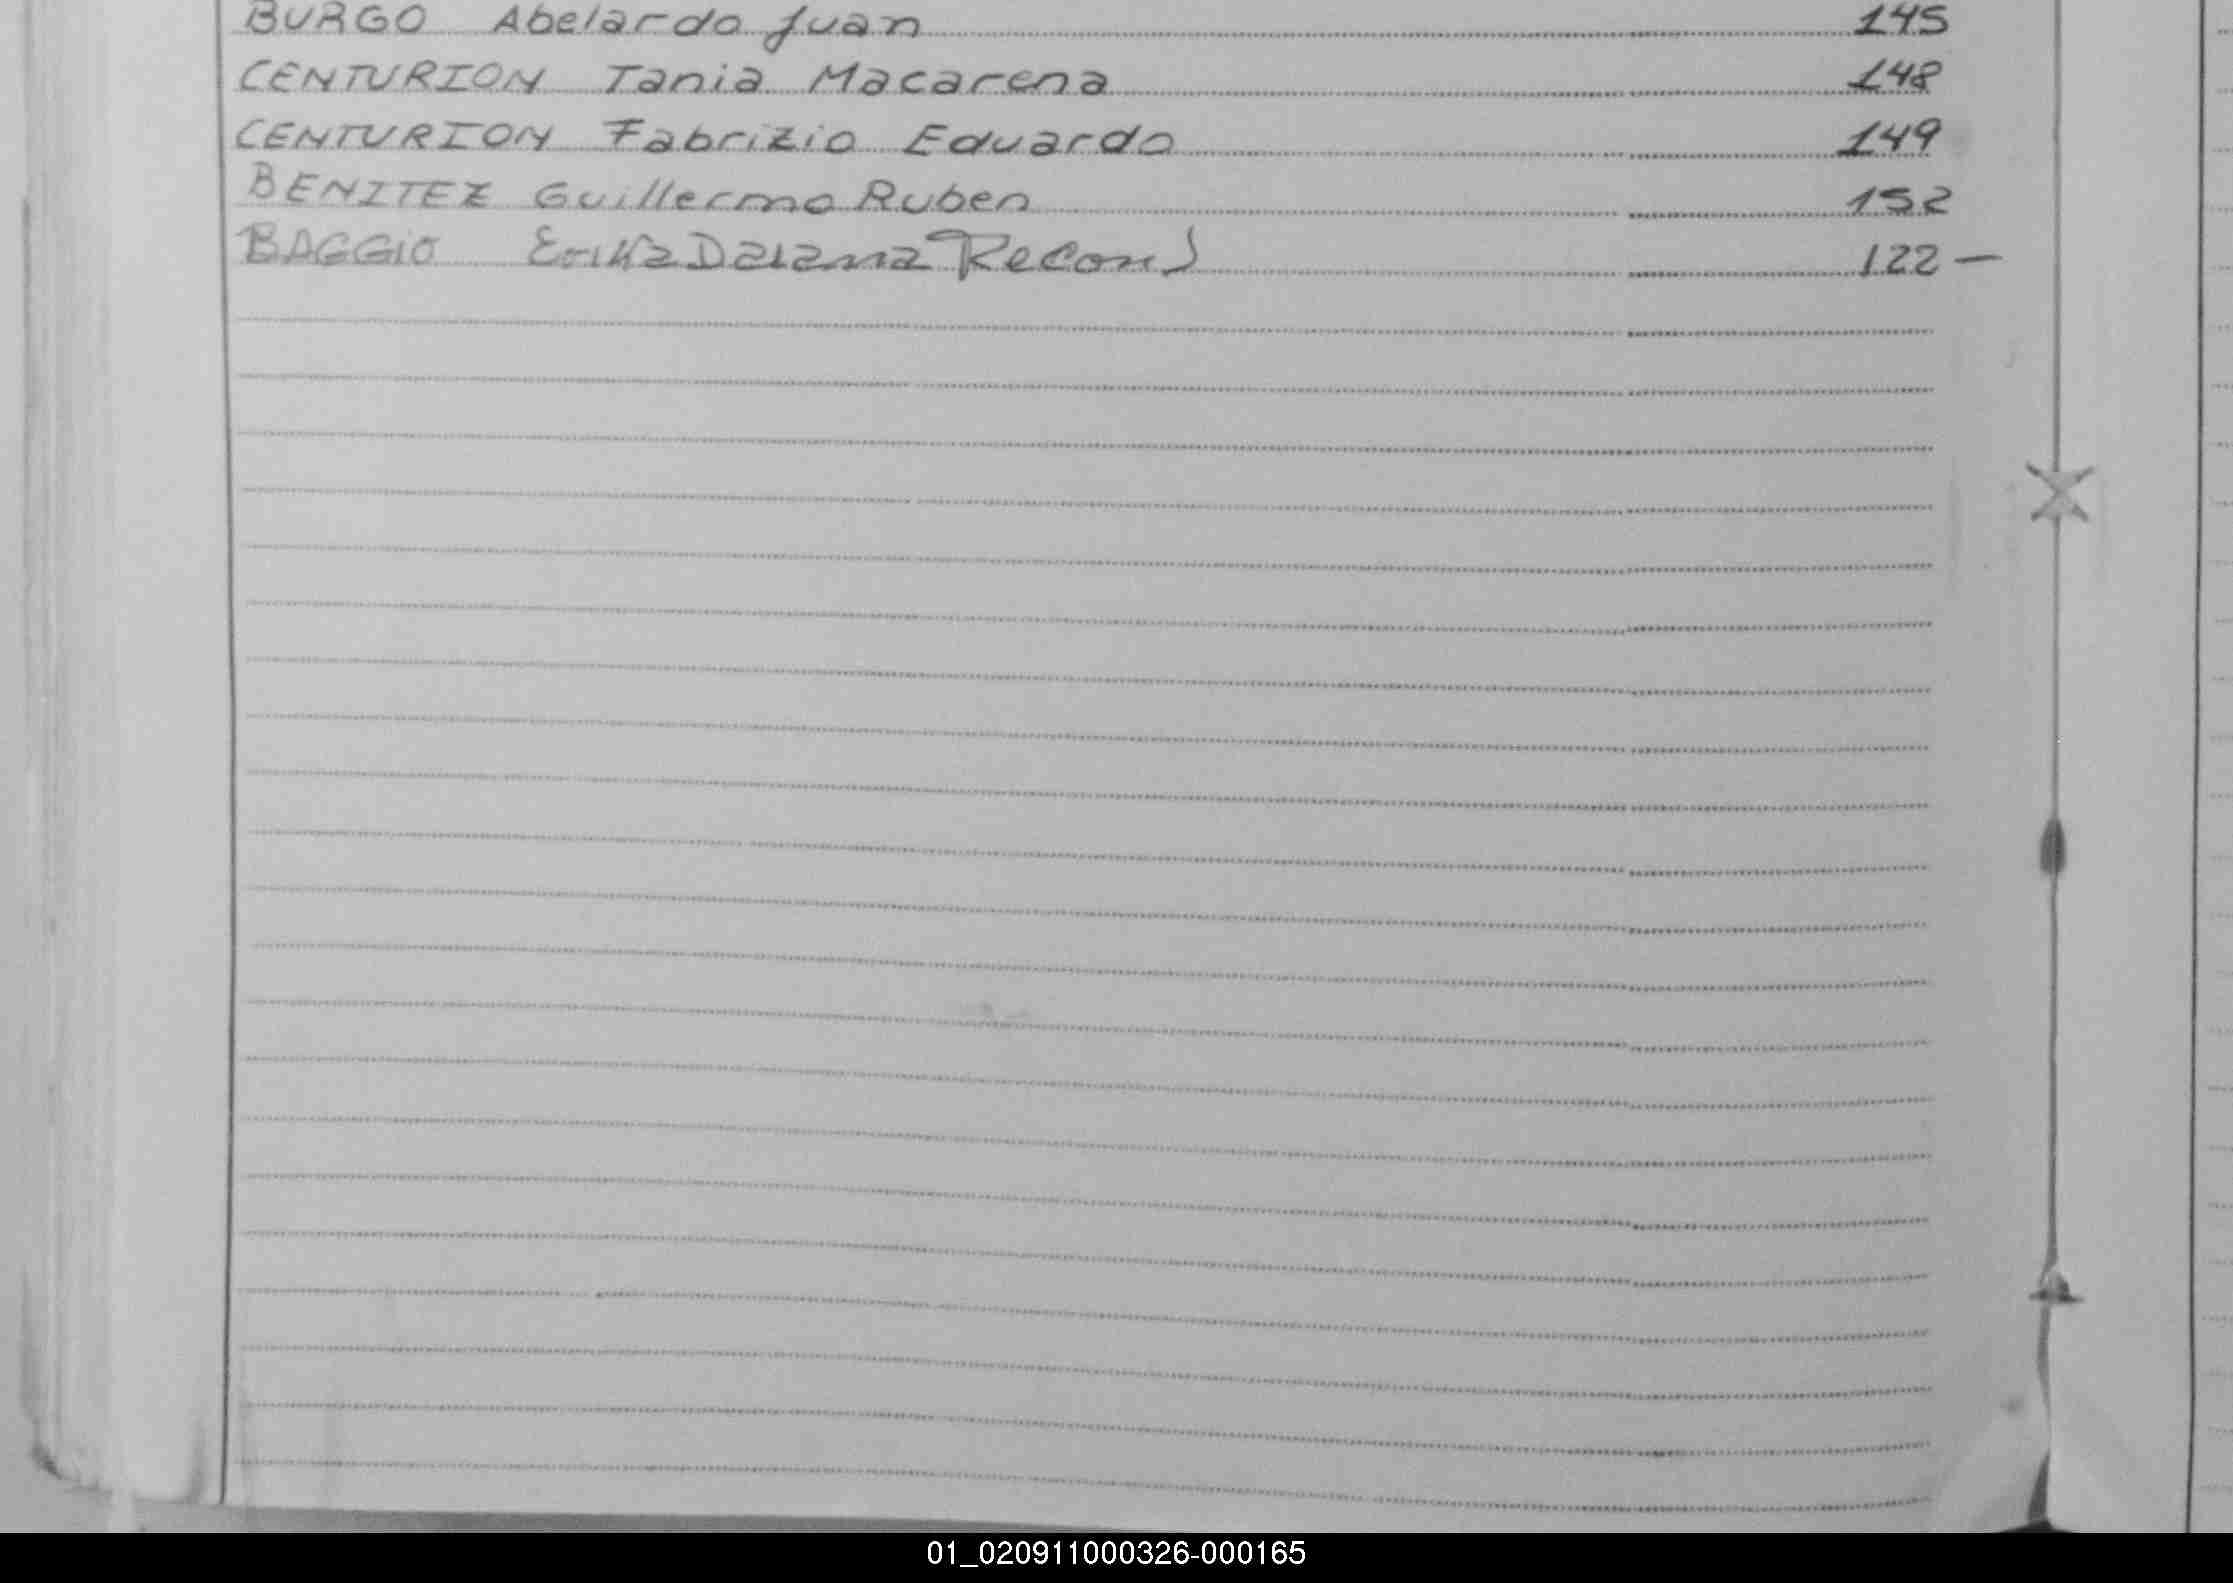 BURGO Abelardo Juan 145
CENTURION Tania Macarena 148
CENTURION Fabrizio Eduardo 149
BENITEZ Guillermo Ruben 152
BAGGIO Erika Daiana 122 -
01_020911000326-000165